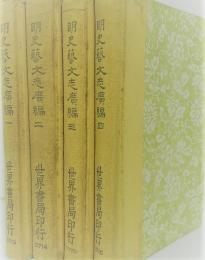 明史藝文志廣編 一
世界書局印行
明史藝文志廣編 二
世界書局印行
明史藝文志廣編 三
世界書局印行
明史藝文志廣編 四
世界書局印行